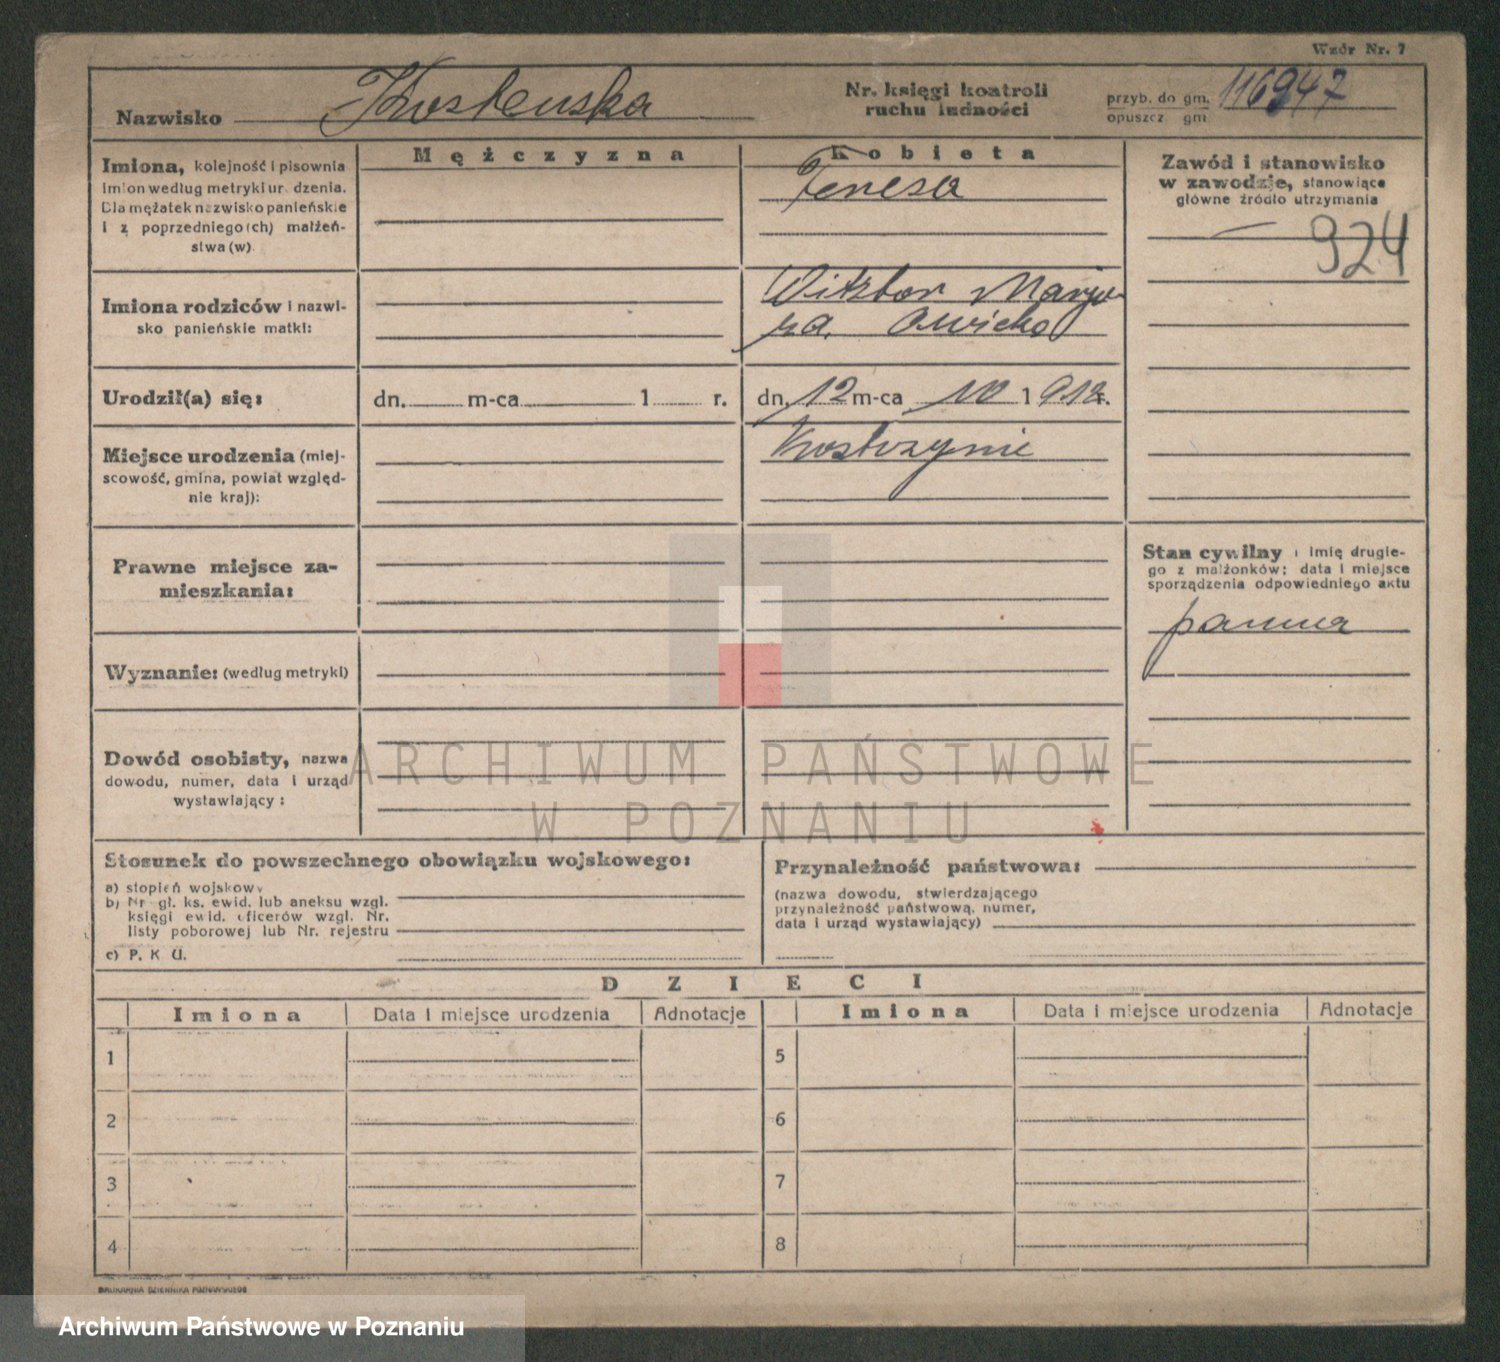 Wzór Nr. 7
Nazwisko Kostenska
Nr. księgi kontroli ruchu ludności
przyb. do gm. 116947
opuszcz gm
Mężczyzna
Kobieta
Imiona, kolejność i pisownia
imion według metryki urodzenia.
Dla mężatek nazwisko panieńskie
i z poprzedniego(ch) małżeń-
stwa (w).
Teresa
Zawód i stanowisko
w zawodzie, stanowiące
główne źródło utrzymania
924
Imiona rodziców i nazwi-
sko panieńskie matki:
Wiktor Marjan-
na
Urodził(a) się:
dn. m-ca 1 r.
dn. 12 m-ca 10 1918 r.
Miejsce urodzenia (miej-
scowość, gmina, powiat względ-
nie kraj):
Kostrzynie
Prawne miejsce za-
mieszkania:
Stan cywilny i imię drugie-
go z małżonków; data i miejsce
sporządzenia odpowiedniego aktu
panna
Wyznanie: (według metryki)
Dowód osobisty, nazwa
dowodu, numer, data i urząd
wystawiający:
ARCHIWUM PAŃSTWOWE
W POZNANIU
Stosunek do powszechnego obowiązku wojskowego:
a) stopień wojskowy
b) Nr gł. ks. ewid. lub aneksu wzgl.
księgi ewid. oficerów wzgl. Nr.
listy poborowej lub Nr. rejestru
c) P. K U.
Przynależność państwowa:
(nazwa dowodu, stwierdzającego
przynależność państwową, numer,
data i urząd wystawiający)
DZIECI
Imiona Data i miejsce urodzenia Adnotacje Imiona Data i miejsce urodzenia Adnotacje
1 5
2 6
3 7
4 8
DRUKARNIA DZIENNIKA POZNAŃSKIEGO
Archiwum Państwowe w Poznaniu